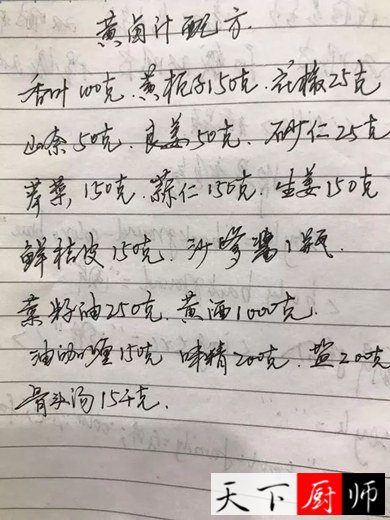 黄卤汁配方
香叶100克.黄栀子150克.花椒25克
山柰50克.良姜50克.石砂仁25克
芹菜,150克.蒜仁150克.生姜150克
鲜桔皮150克.沙爹酱1瓶.
菜籽油250克.黄酒1000克.
油咖喱150克 味精200克.盐200克
骨头汤15千克.
天下厨师